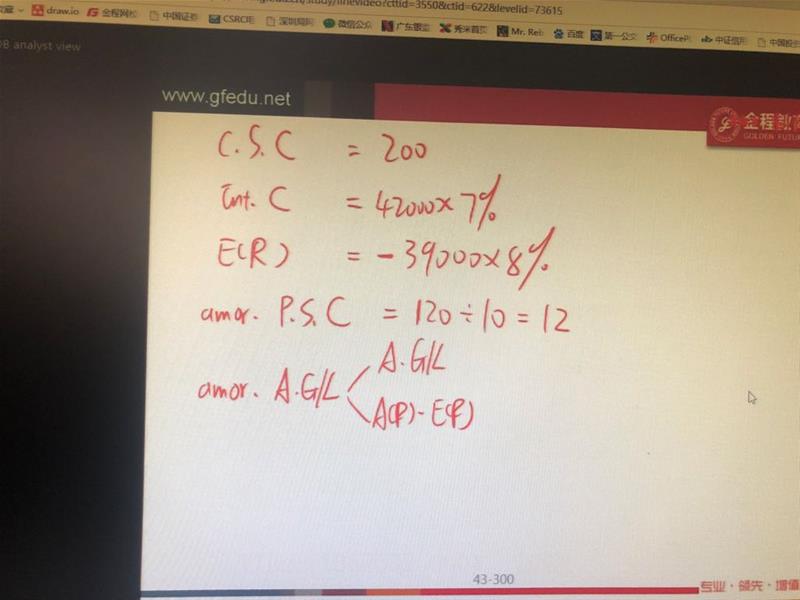 inevideo?cttid=3550&ctid=622&levelid=73615
draw.io 金程网校 中国证券 CSRC 深圳局网 微信公众 广东银监 秀米首页 Mr. Rei 百度 第一公文 OfficePL 中证信用 中国投资
DB analyst view
www.gfedu.net
金程教育
GOLDEN FUTURE
C.S.C = 200
Int. C = 42000×7%
E(R) = -39000×8%
amor. P.S.C = 120÷10 = 12
A.G/L
amor. A.G/L
A(R)-E(R)
43-300
专业·领先·增值